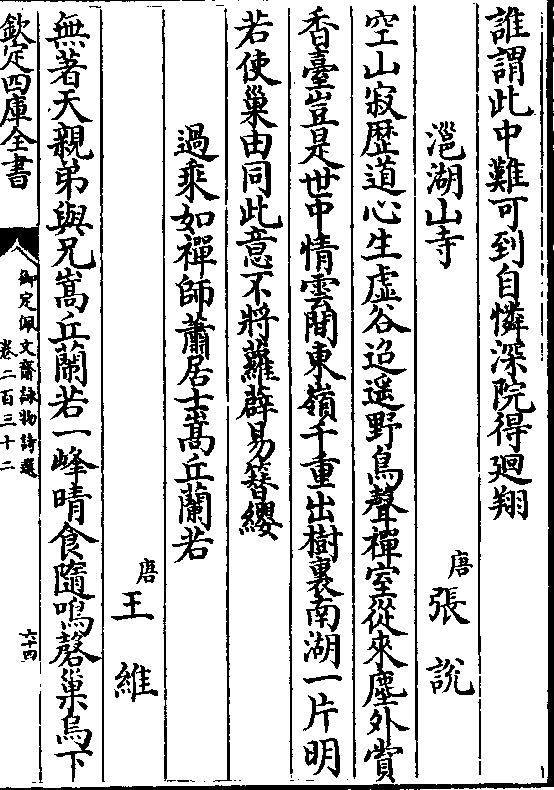 誰謂此中難可到自憐深院得廻翔
㴩湖山寺
唐張說
空山寂歴道心生虚谷迢遥野鳥聲禪室從來塵外賞
香臺豈是世中情雲間東嶺千重出樹裏南湖一片明
若使巢由同此意不將蘿薜易簪纓
過乘如禪師蕭居士嵩丘蘭若
唐王維
無著天親弟與兄嵩丘蘭若一峰晴食隨鳴磬巢烏下
欽定四庫全書
御定佩文齋詠物詩選
卷二百三十二
六十四